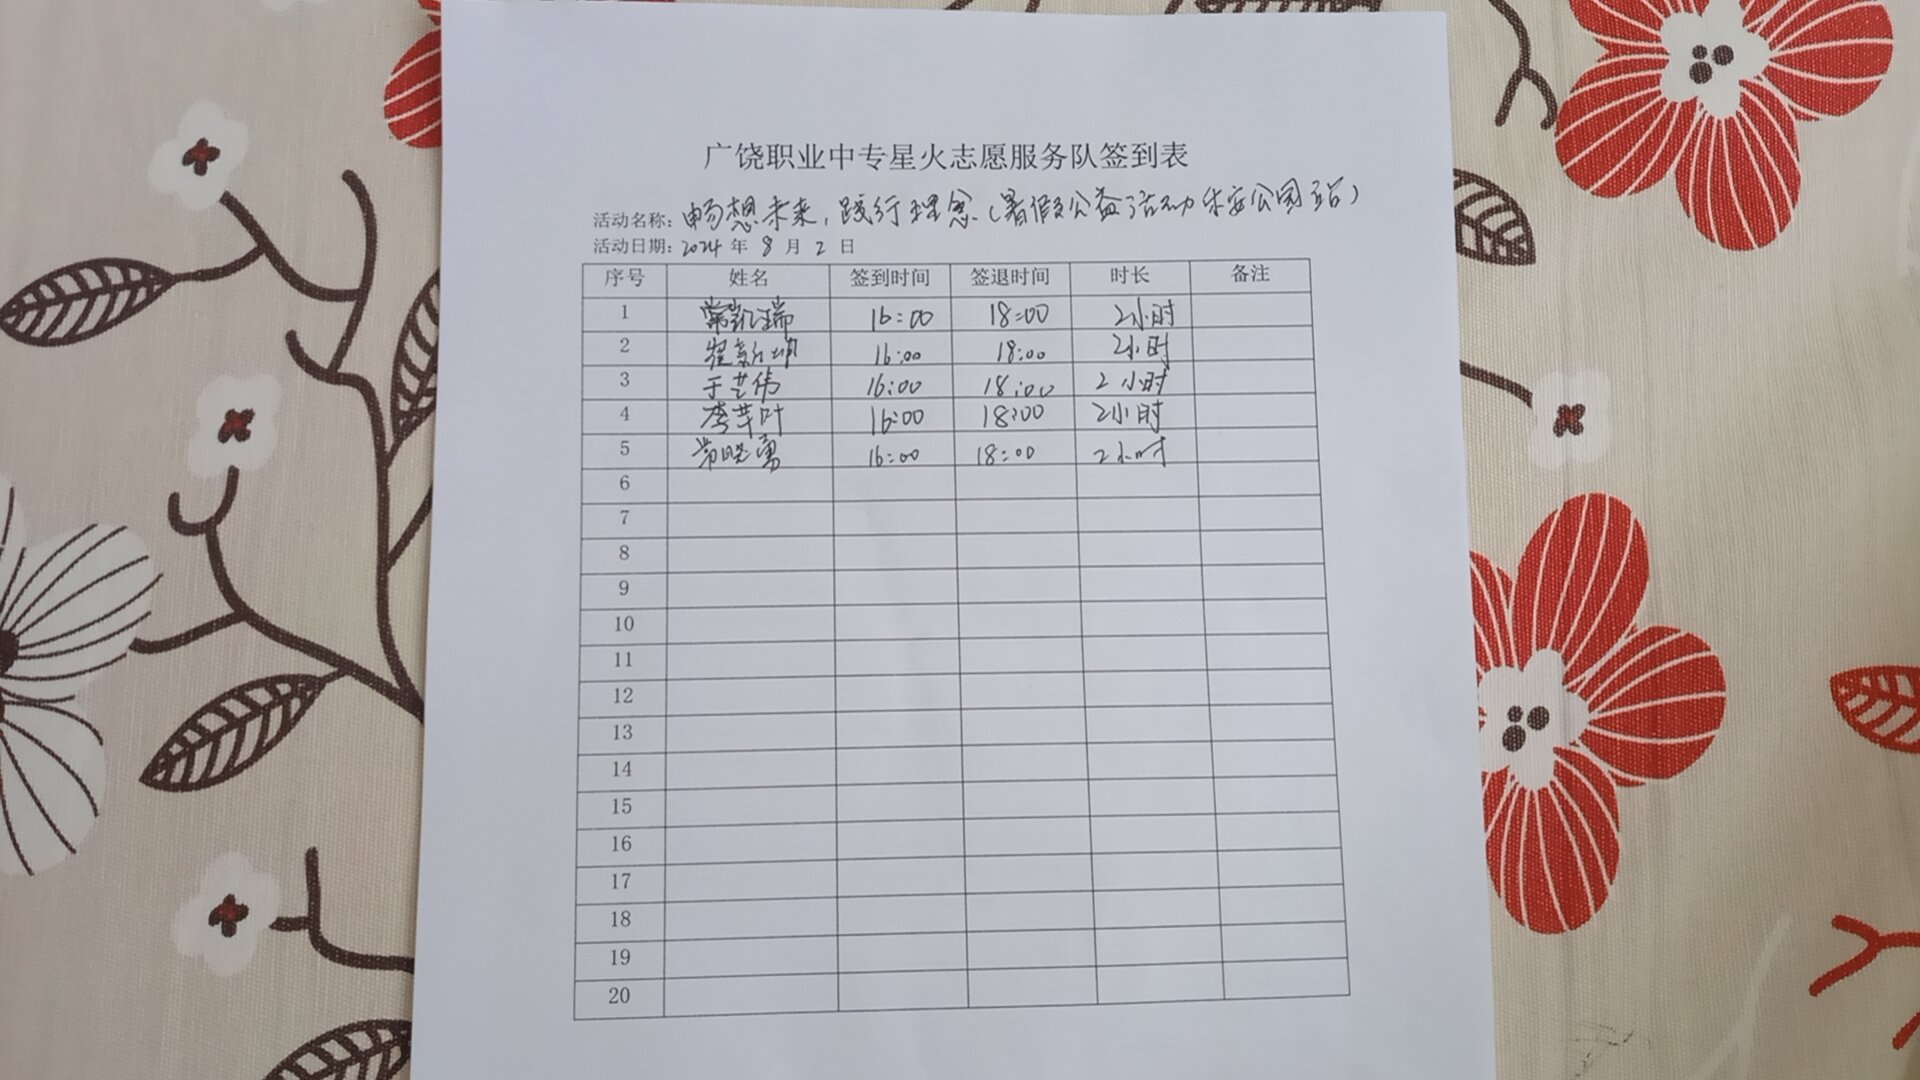 广饶职业中专星火志愿服务队签到表
活动名称：畅想未来，践行理念（暑假公益活动乐安公园站）
活动日期：2024 年 8 月 2 日
序号 姓名 签到时间 签退时间 时长 备注
1 常凯瑞 16:00 18:00 2小时
2 翟新坤 16:00 18:00 2小时
3 于芝伟 16:00 18:00 2小时
4 李芊叶 16:00 18:00 2小时
5 常晓勇 16:00 18:00 2小时
6
7
8
9
10
11
12
13
14
15
16
17
18
19
20